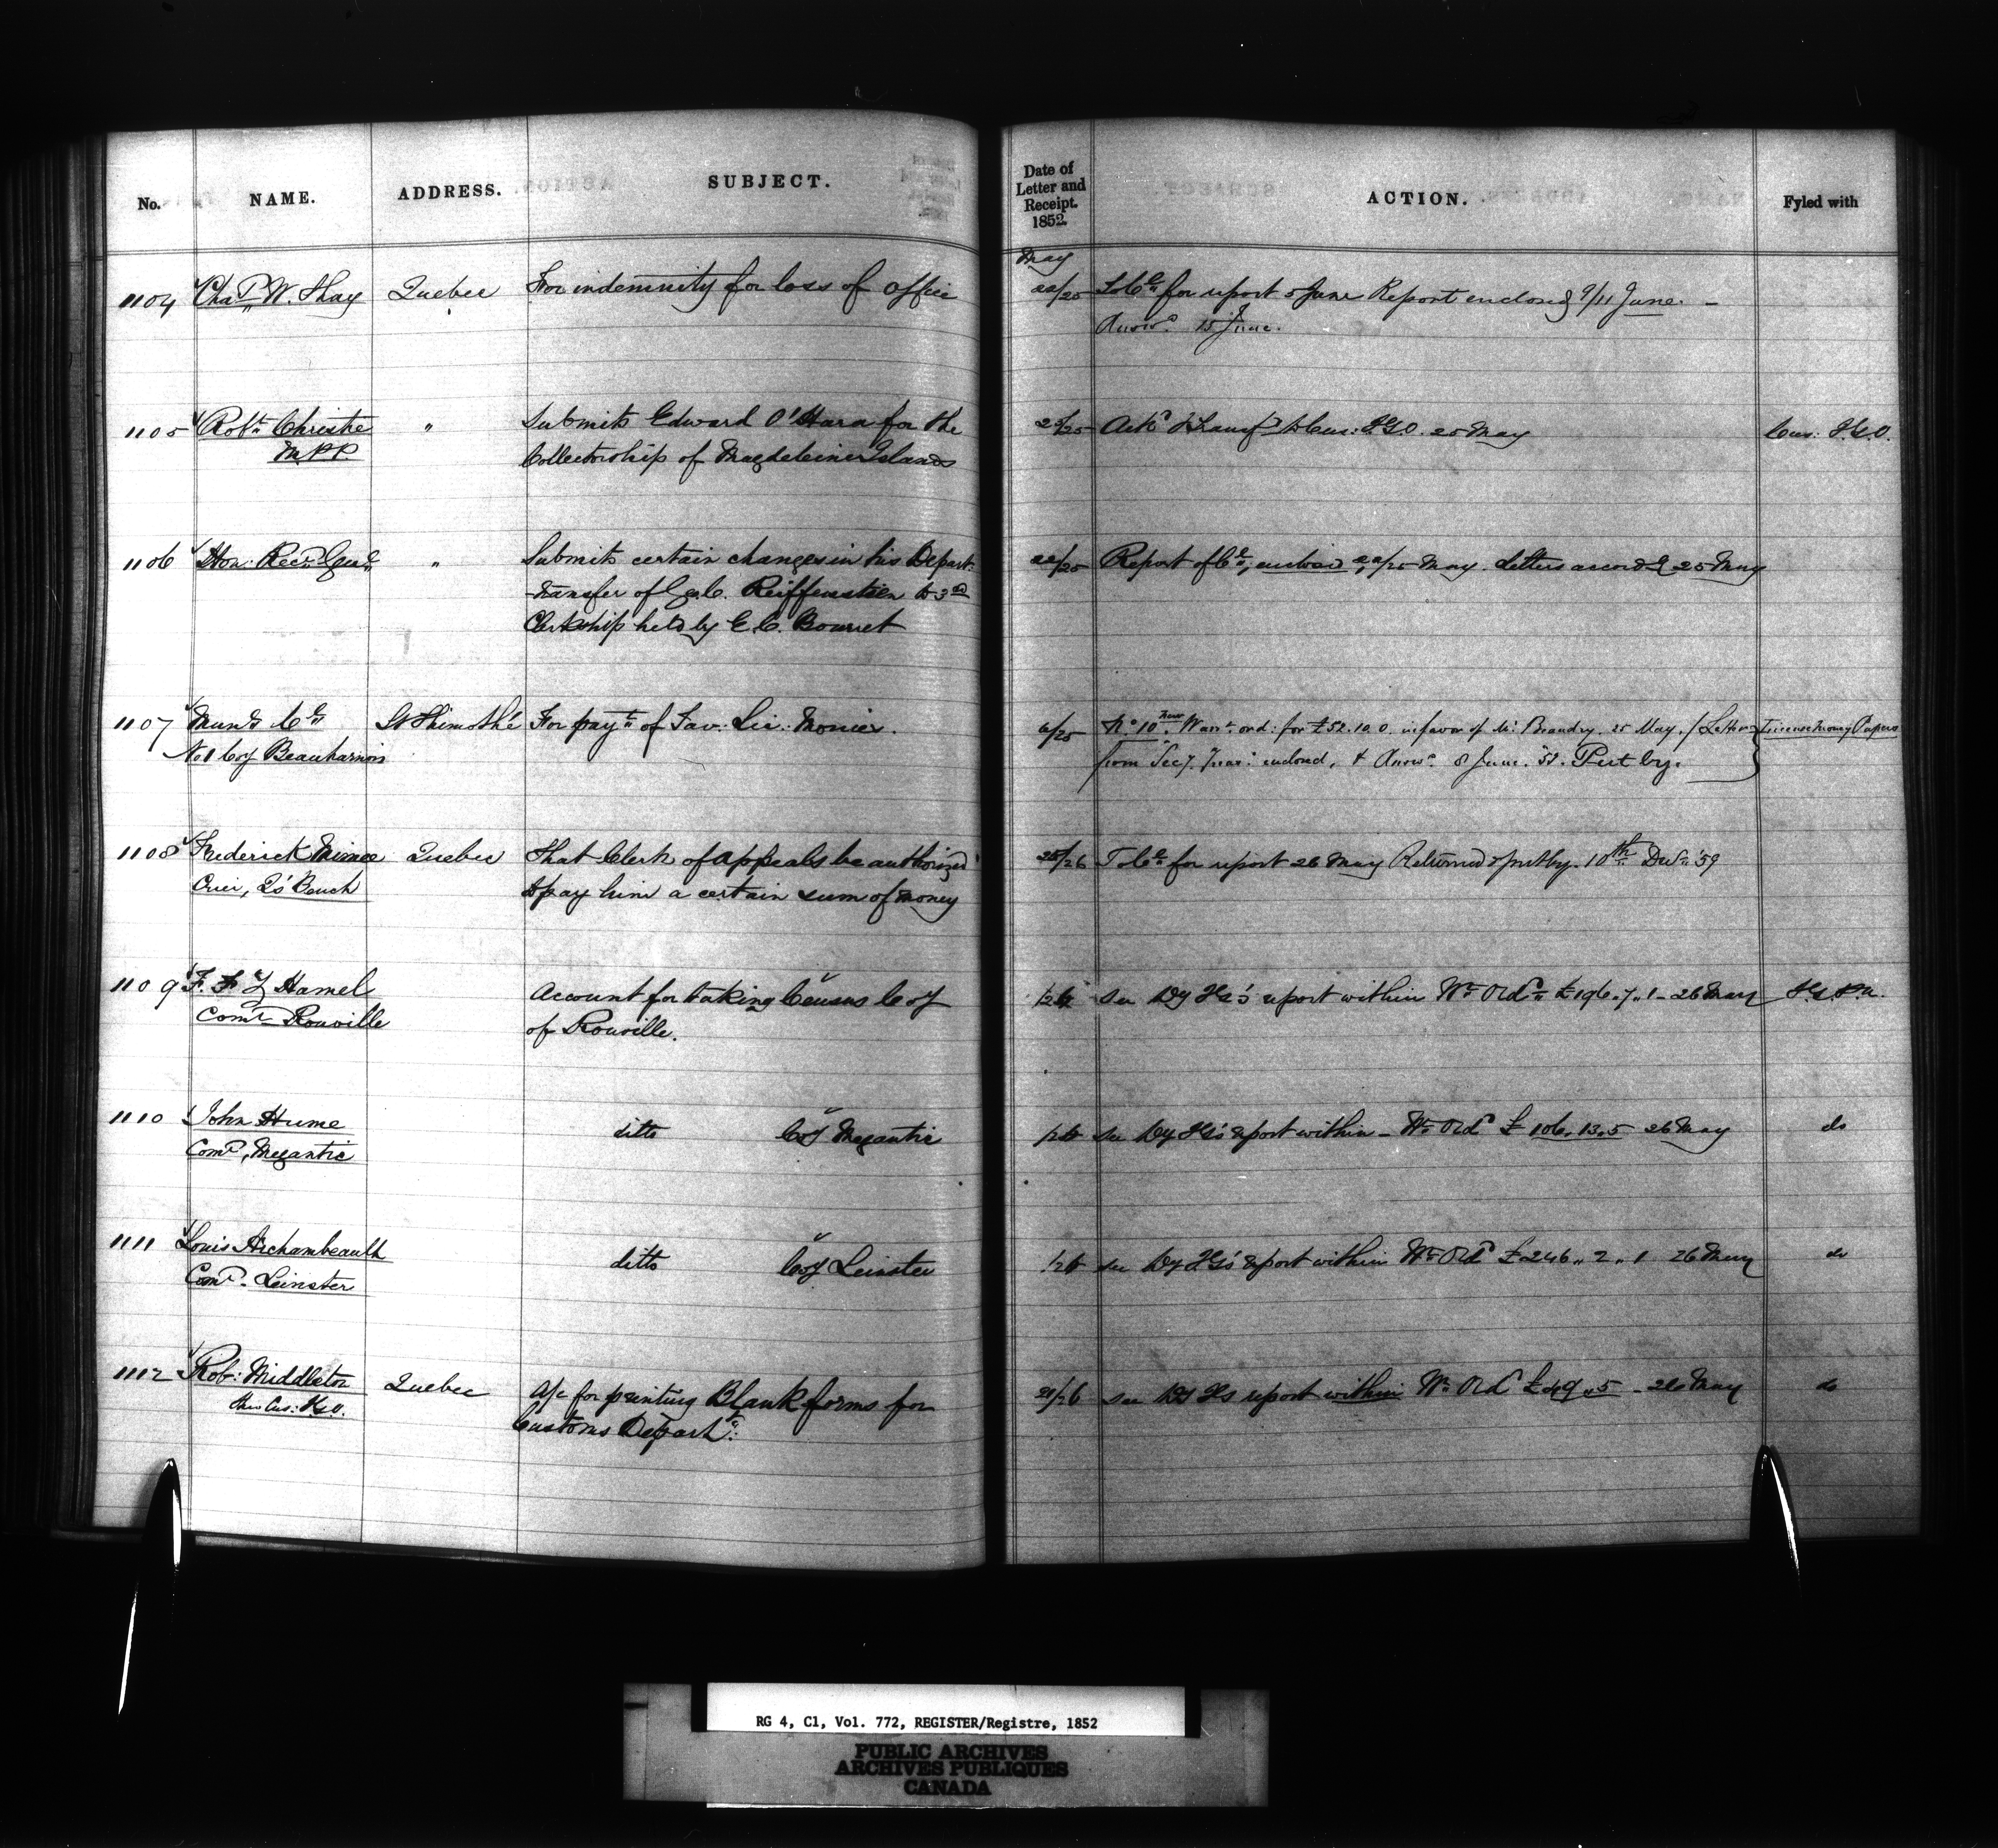 No. NAME. ADDRESS. SUBJECT. Date of Letter and Receipt. 1852. ACTION. Fyled with
May
1104 Chas W. Shay Quebec For indemnity for loss of office 22/25 To Ce for report 5 June Report enclosed 9/11 June. –
Answd. 15 June.
1105 Robt. Christie " Submits Edward O'Hara for the 25/25 Ackd & Transfd to Cus: I.G.O. 25 May Cus: I.G.O.
M.P.P. Collectorship of Magdeleine Islands
1106 Hon: Recr. Genl. " Submits certain changes in his Depart: 22/25 Report of Ce, enclosed 22/25 May. Letters accordg. 25 May
transfer of G.C. Reiffenstein to 3rd
Clerkship held by E C. Bourret
1107 Munl. Cl. St Thimothé For payt. of Tav: Lic: Monies. 6/25 No. 10 Warrt. ord: for £52.10.0 in favor of Mr Beaudry. 25 May. / Letter License Money Papers
No. 1 Coy Beauharnois from Secy. Treas: enclosed, & Answd. 8 June. '52. Put by.
1108 Frederick Mimee Quebec That Clerk of Appeals be authorized 25/26 To Ce for report 26 May Returned & put by. 10th Decr. '59
Crier, Qs' Bench to pay him a certain sum of money
1109 F. F. Z Hamel Account for taking Census Coy /26 See Dy IGs' report within Wt. Ordd. £196.7.1 – 26 May I.G.P.A.
Comr. Rouville of Rouville.
1110 John Hume ditto Coy Megantic /26 See Dy IGs' report within – Wt. Ordd £106.13.5 26 May do
Comr, Megantic
1111 Louis Archambeault ditto Coy Leinster /26 See Dy IGs' report within Wt. Ordd £246 " 2 " 1 26 May do
Comr. Leinster
1112 Rob: Middleton Quebec A/c for printing Blank forms for 21/26 See Dy IGs report within Wt. Ordd £49 " 5 – 26 May do
thro Cus: I.G.O. Customs Departt.
RG 4, C1, Vol. 772, REGISTER/Registre, 1852
PUBLIC ARCHIVES
ARCHIVES PUBLIQUES
CANADA